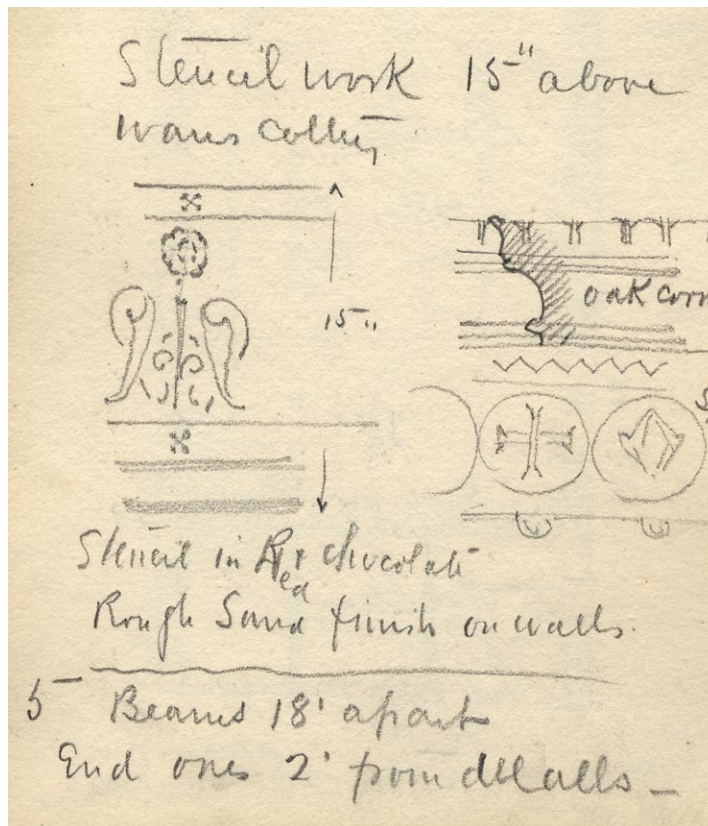 Stencil work 15" above
15"
oak corn
Stencil in Red & chocolate
Rough Sand finish on walls.
5 Beams 18' apart
End ones 2' from walls